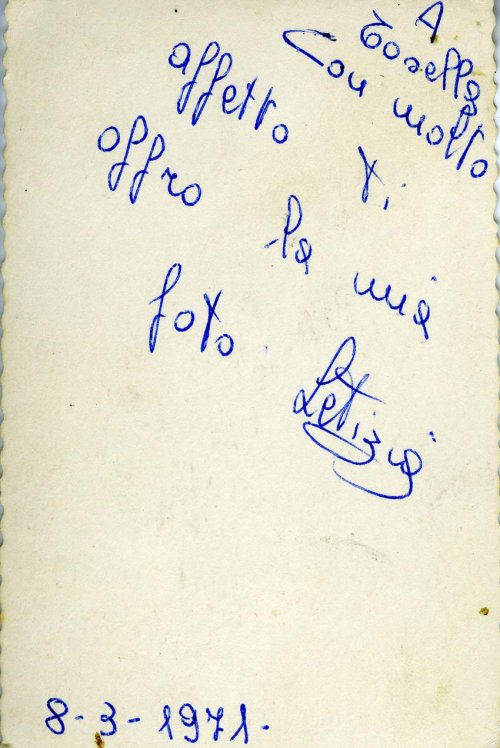 A
Con molto
affetto ti
offro la mia
foto.
Letizia
8-3-1971.